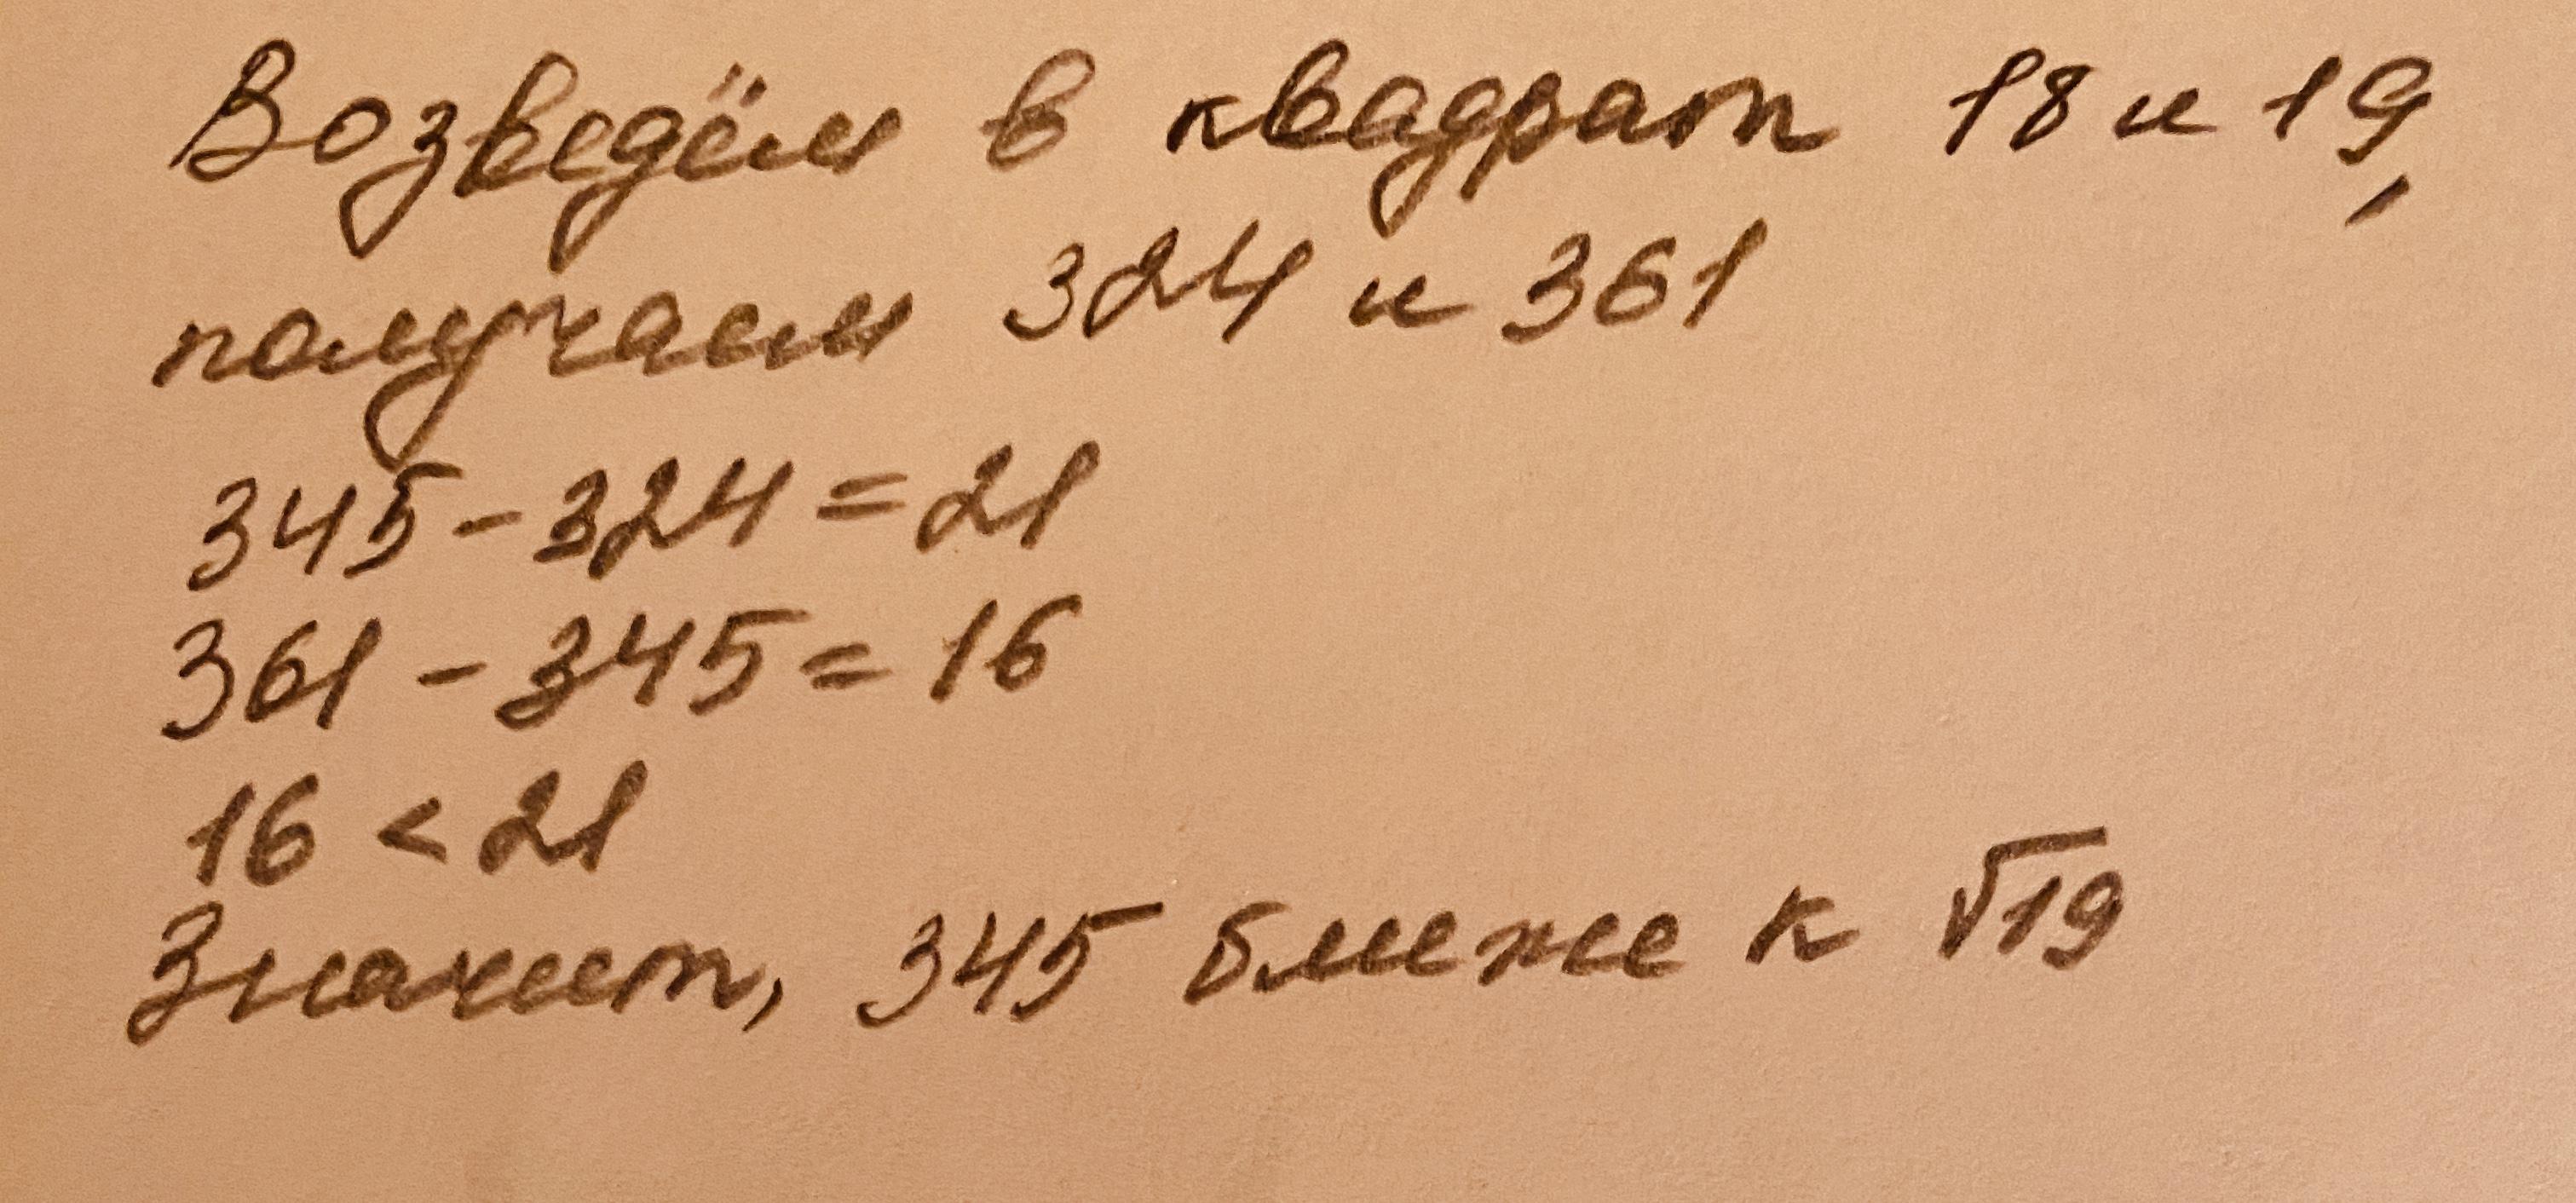 Возведём в квадрат 18 и 19,
получаем 324 и 361
345 - 324 = 21
361 - 345 = 16
16 < 21
Значит, 345 ближе к √19